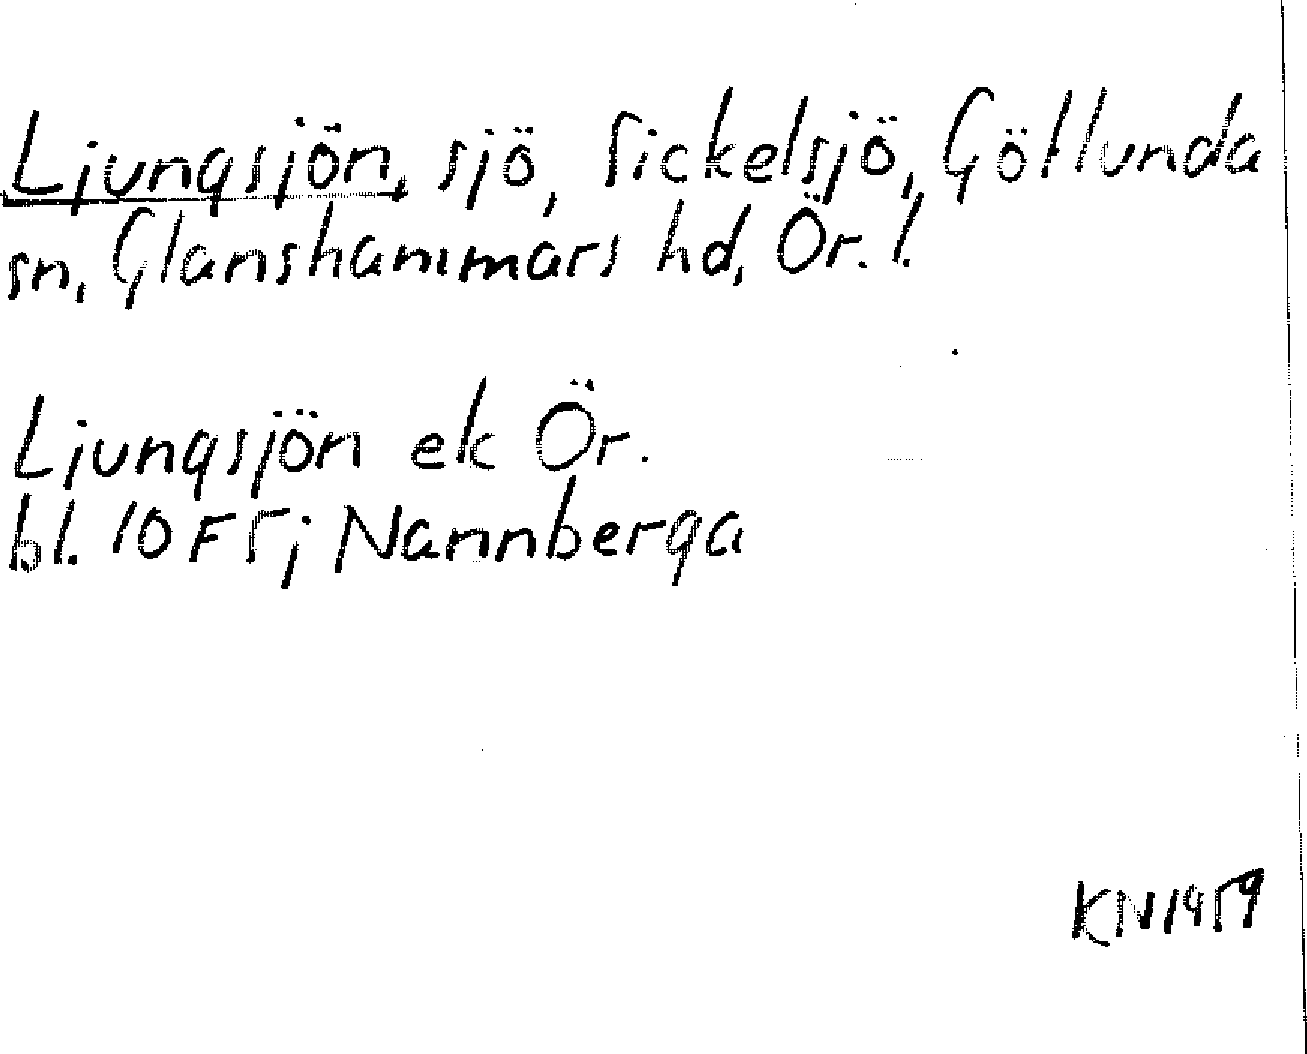 Ljungsjön, sjö, Sickelsjö, Götlunda
sn, Glanshammars hd, Ör. l.
Ljungsjön ek Ör.
bl. 10F5; Nannberga
KN1959